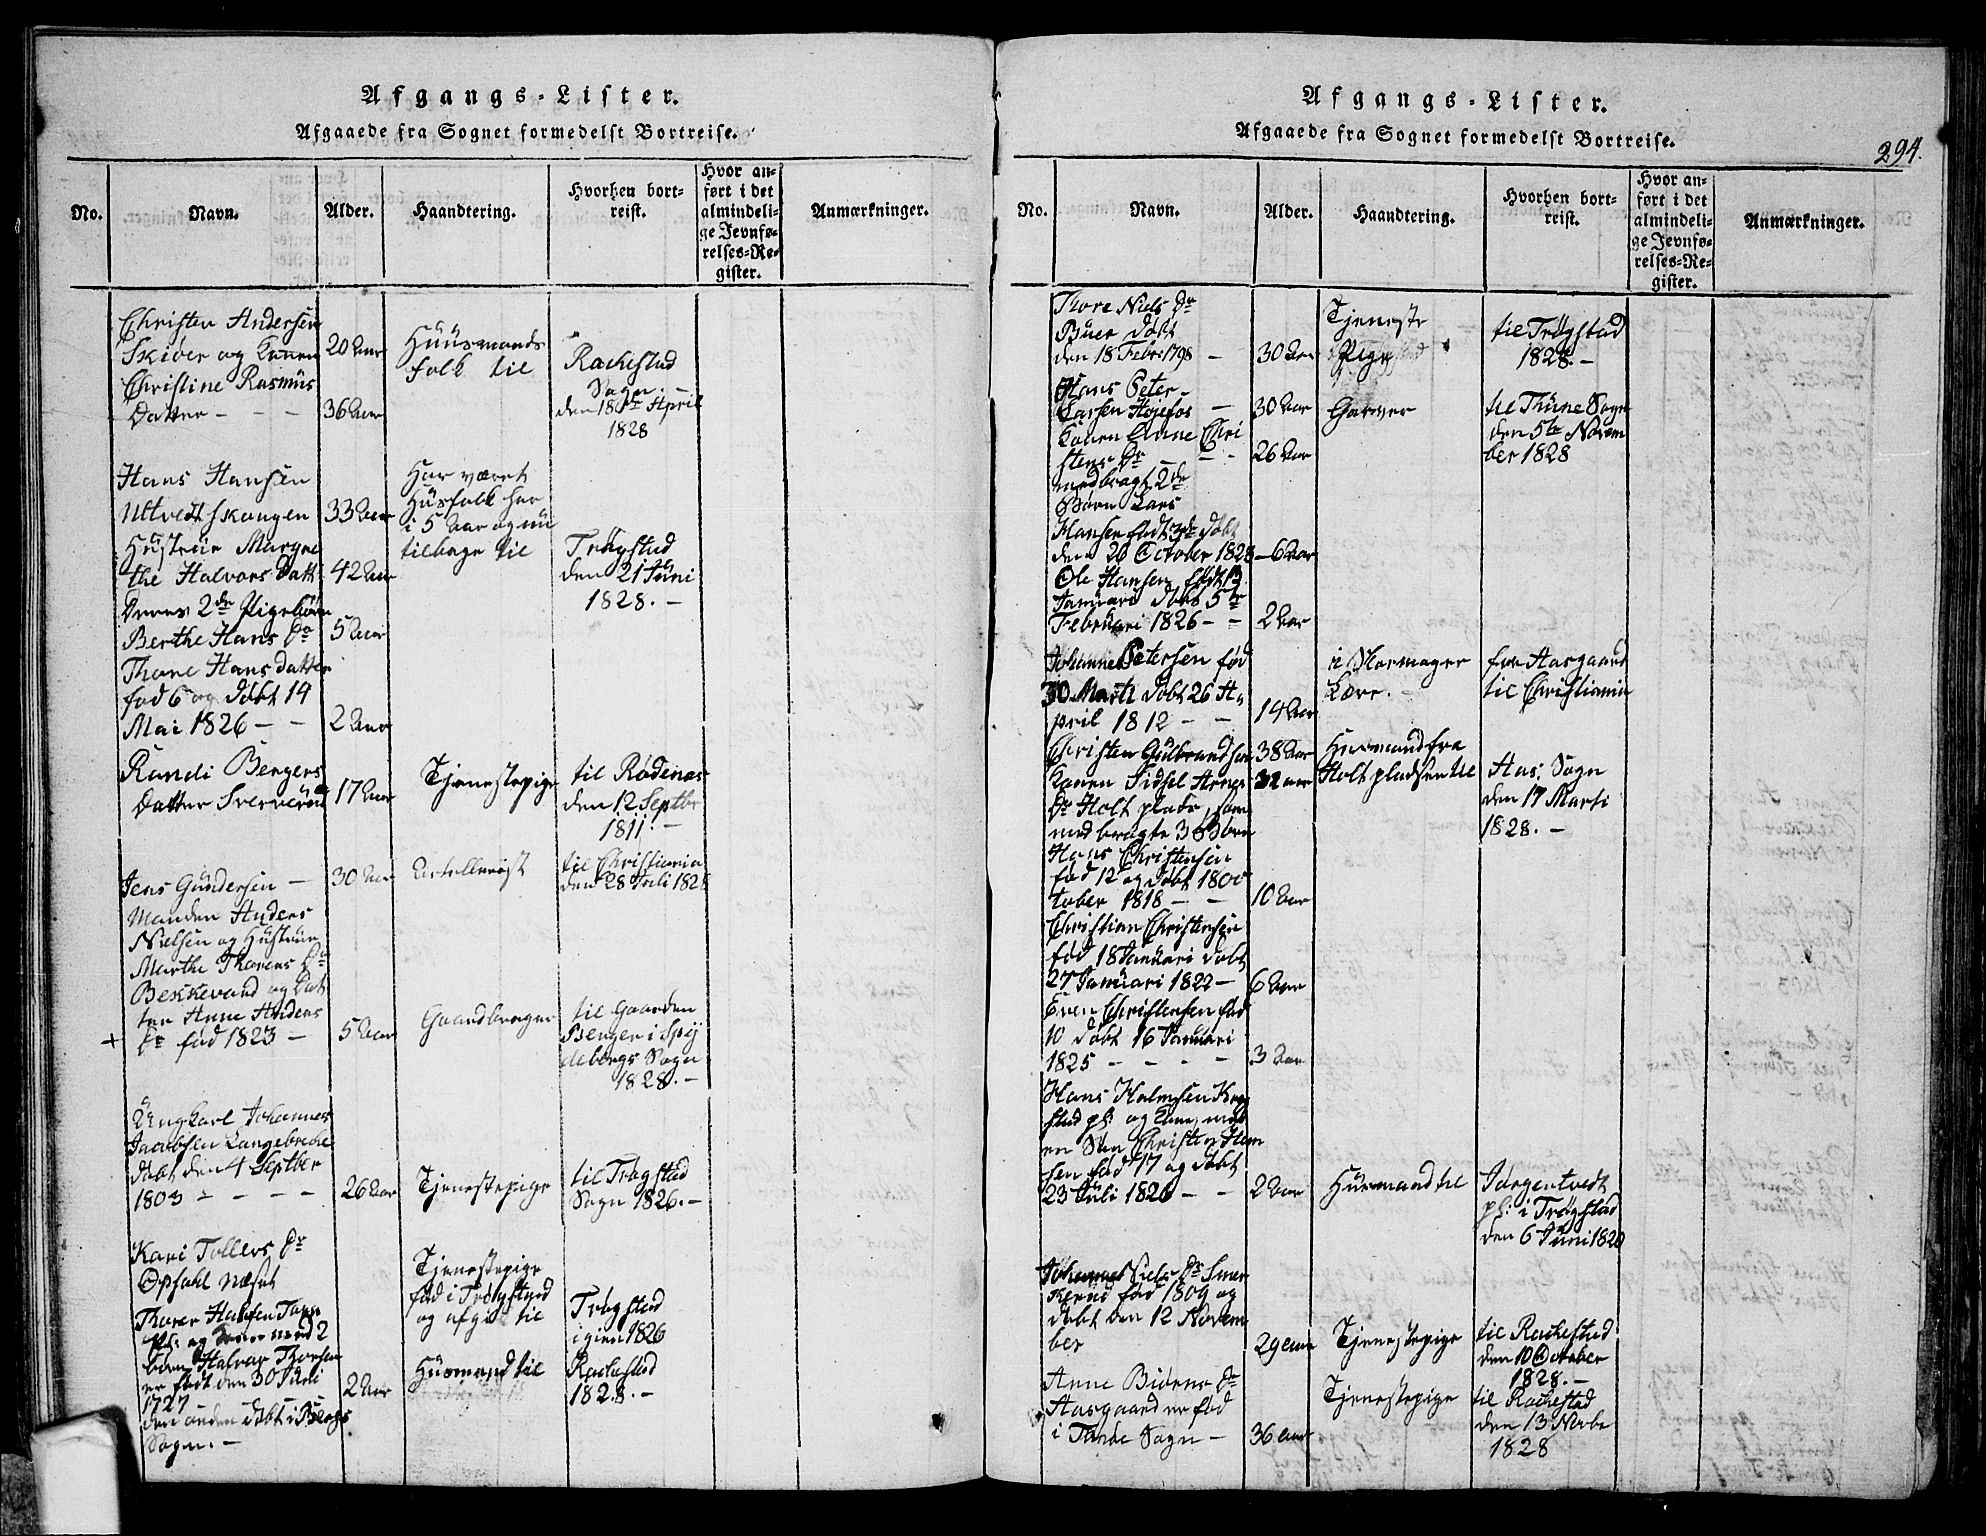 Afgangs-Lister.
Afgaaede fra Sognet formedelst Bortreise.
No.
Navn.
Alder.
Haandtering.
Hvorhen bort-
reist.
Hvor an-
ført i det
almindeli-
ge Jevnfø-
relses-Re-
gister.
Anmærkninger.
Christen Andersen
Skiøer og Konen
Christine Rasmus
Datter - - -
20 Aar
36 Aar
Huusmands
folk til
Rackestad
Sogn. -
den 18de April
1828
Hans Hansen
Ultvedt skougen
Hustrue Margre
the Halvors Datt
Deres 2de Pigebørn
Berthe Hans Dr
Thore Hansdatter
fød 6 og døbt 14
Mai 1826 - -
33 Aar
42 Aar
5 Aar
2 Aar
Har været
Husfolk her
i 5 Aar og nu
tilbage til
Trøgstad
den 21 Juni
1828. -
Randi Bergers
Datter Sververud
17 Aar
Tjenestepige
til Rødenes
den 12 Septbr
1811. -
Jens Gundersen -
30 Aar
til Christiania
den 28 Juli 1828
Manden Anders
Nielsen og Hustrue
Marthe Thorens Dr
Bekkevand og Dat
ter Anne Anders
+ Dr fød 1823 -
5 Aar
Gaardbruger
til Gaarden
Benger i Spy
debergs Sogn
1828. -
Ungkarl Johannes
Jacobsen Langebrede
døbt den 4 Septber
1803 - - - -
26 Aar
Tjenestepige
til Trøgstad
Sogn 1826. -
Kari Tollers Dr
Opsahl næset
Tjenestepige
fød i Trøgstad
og afgik til
Trøgstad
igien 1826
Thorer Halvsen
pl: og Konen med 2
børn Halvor Thorsen
er født den 30 Juli
1727 - -
den anden døbt i Bergs
Sogn. -
2 Aar
Husmand til
Rackestad
1828. -
Afgangs-Lister.
Afgaaede fra Sognet formedelst Bortreise.
294.
No.
Navn.
Alder.
Haandtering.
Hvorhen bort-
reist.
Hvor an-
ført i det
almindeli-
ge Jevnfø-
relses-Re-
gister.
Anmærkninger.
Thore Niels Dr
Buer døbt
den 18 Febr 1798 -
30 Aar
Tjeneste
Pige
til Trøgstad
1828. -
Hans Peter
Larsen Høiefos -
Konen Anne Chri
stens Dr - - -
medbragt 2de
Børn Lars
Hansen født 3de døbt
den 20 October 1828 -
Ole Hansen født 13
Januari døbt 5te
Februari 1826 - -
30 Aar
26 Aar
6 Aar
2 Aar
Garver
til Thune Sogn
den 5te Novem
ber 1828
Johannes Petersen fød
30 Marti døbt 26 A-
pril 1812 - -
14 Aar
Lære. -
fra Aasgaard
til Christiania
Christen Gulbrandsen
Konen Sidsel Arnes
Dr Holt plads, som
medbragte 3 Børn
Hans Christensen
fød 12 og døbt 18 Oc
tober 1818 - -
Christian Christensen
fød 18 Januari døbt
27 Januari 1822 -
Even Christensen fød
10 døbt 16 Januari
1825 - - - -
38 Aar
32 aar
10 Aar
6 Aar
3 Aar
Huusmand fra
Holt pladsen til
Aas Sogn
den 17 Marti
1828. -
Hans Holmsen
stad pl: og Kone, med
en Søn Christen Han
sen fød 17 og døbt
23 Juli 1826 - -
2 Aar
Husmand til
Jørgentvedt
pl: i Trøgstad
den 6 Juni 1828
Johanne Niels Dr Smer
kerud fød 1809 og
døbt den 12 Novem
ber
29 aar
Tjenestepige
til Rackestad
den 10 October
1828. -
Anne Biørns Dr
Aasgaard er fød
i Tunøe Sogn -
36 aar
Tjenestepige
til Rackestad
den 13 Novbr
1828